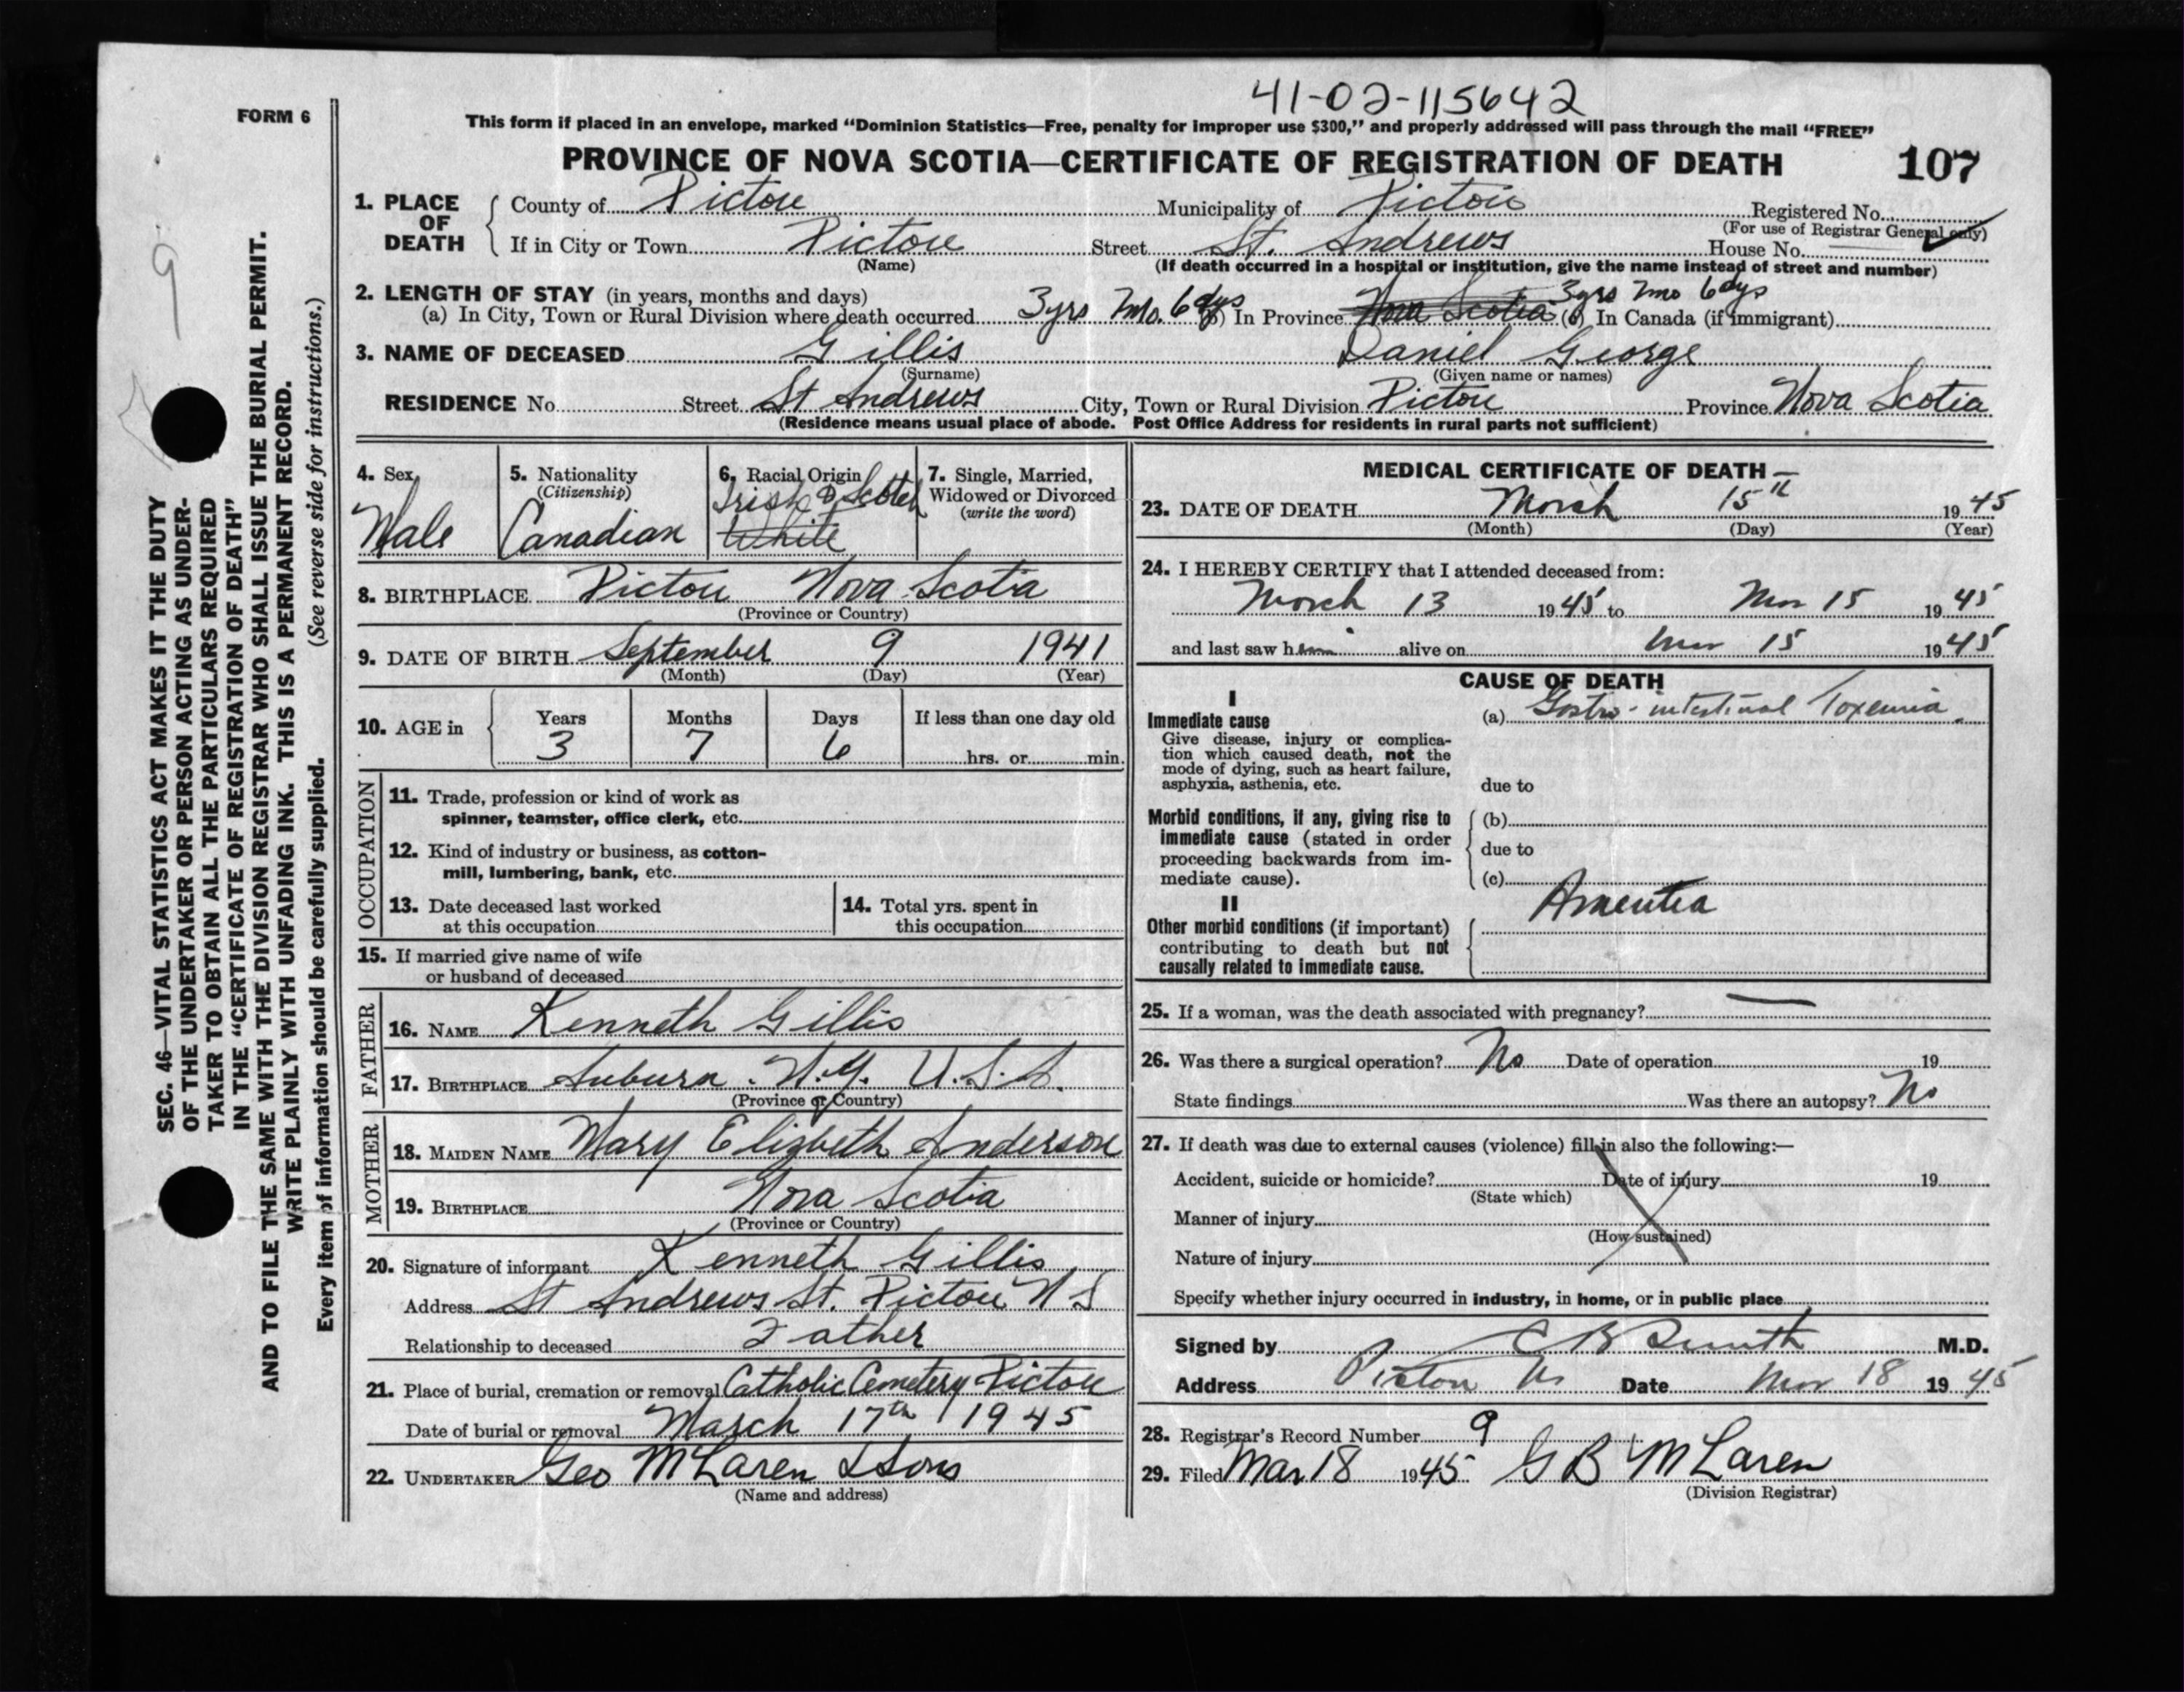 41-02-115642
FORM 6
This form if placed in an envelope, marked "Dominion Statistics—Free, penalty for improper use $300," and properly addressed will pass through the mail "FREE"
PROVINCE OF NOVA SCOTIA—CERTIFICATE OF REGISTRATION OF DEATH 107
1. PLACE OF DEATH
County of Pictou Municipality of Pictou Registered No.
(For use of Registrar General only)
If in City or Town Pictou Street St. Andrews House No.
(Name) (If death occurred in a hospital or institution, give the name instead of street and number)
2. LENGTH OF STAY (in years, months and days)
(a) In City, Town or Rural Division where death occurred 3yrs 7mo. 6dys (b) In Province Nova Scotia 3yrs 7mo 6dys (c) In Canada (if immigrant)
3. NAME OF DECEASED Gillis Daniel George
(Surname) (Given name or names)
RESIDENCE No. Street St Andrews City, Town or Rural Division Pictou Province Nova Scotia
(Residence means usual place of abode. Post Office Address for residents in rural parts not sufficient)
4. Sex
Male
5. Nationality
(Citizenship)
Canadian
6. Racial Origin
Irish & Scotch
White
7. Single, Married,
Widowed or Divorced
(write the word)
8. BIRTHPLACE Pictou Nova Scotia
(Province or Country)
9. DATE OF BIRTH September 9 1941
(Month) (Day) (Year)
10. AGE in Years Months Days If less than one day old
3 7 6 hrs. or min.
OCCUPATION
11. Trade, profession or kind of work as
spinner, teamster, office clerk, etc.
12. Kind of industry or business, as cotton-
mill, lumbering, bank, etc.
13. Date deceased last worked
at this occupation
14. Total yrs. spent in
this occupation
15. If married give name of wife
or husband of deceased
FATHER
16. NAME Kenneth Gillis
17. BIRTHPLACE Auburn. N.Y. U.S.A.
(Province or Country)
MOTHER
18. MAIDEN NAME Mary Elizbeth Anderson
19. BIRTHPLACE Nova Scotia
(Province or Country)
20. Signature of informant Kenneth Gillis
Address St Andrews St. Pictou N S
Relationship to deceased Father
21. Place of burial, cremation or removal Catholic Cemetery Pictou
Date of burial or removal March 17th 1945
22. UNDERTAKER Geo McLaren & Sons
(Name and address)
MEDICAL CERTIFICATE OF DEATH
23. DATE OF DEATH March 15th 1945
(Month) (Day) (Year)
24. I HEREBY CERTIFY that I attended deceased from:
March 13 1945 to Mar 15 1945
and last saw him alive on Mar 15 1945
CAUSE OF DEATH
I
Immediate cause
Give disease, injury or complica-
tion which caused death, not the
mode of dying, such as heart failure,
asphyxia, asthenia, etc.
(a) Gastro-intestinal Toxemia.
due to
Morbid conditions, if any, giving rise to
immediate cause (stated in order
proceeding backwards from im-
mediate cause).
(b)
due to
(c)
II
Other morbid conditions (if important)
contributing to death but not
causally related to immediate cause.
Amentia
25. If a woman, was the death associated with pregnancy? —
26. Was there a surgical operation? No Date of operation 19
State findings Was there an autopsy? No
27. If death was due to external causes (violence) fill in also the following:—
Accident, suicide or homicide? Date of injury 19
(State which)
Manner of injury
(How sustained)
Nature of injury
Specify whether injury occurred in industry, in home, or in public place
Signed by C B Smith M.D.
Address Pictou NS Date Mar 18 1945
28. Registrar's Record Number 9
29. Filed Mar 18 1945 G B McLaren
(Division Registrar)
9
SEC. 46—VITAL STATISTICS ACT MAKES IT THE DUTY
OF THE UNDERTAKER OR PERSON ACTING AS UNDER-
TAKER TO OBTAIN ALL THE PARTICULARS REQUIRED
IN THE "CERTIFICATE OF REGISTRATION OF DEATH"
AND TO FILE THE SAME WITH THE DIVISION REGISTRAR WHO SHALL ISSUE THE BURIAL PERMIT.
WRITE PLAINLY WITH UNFADING INK. THIS IS A PERMANENT RECORD.
Every item of information should be carefully supplied. (See reverse side for instructions.)